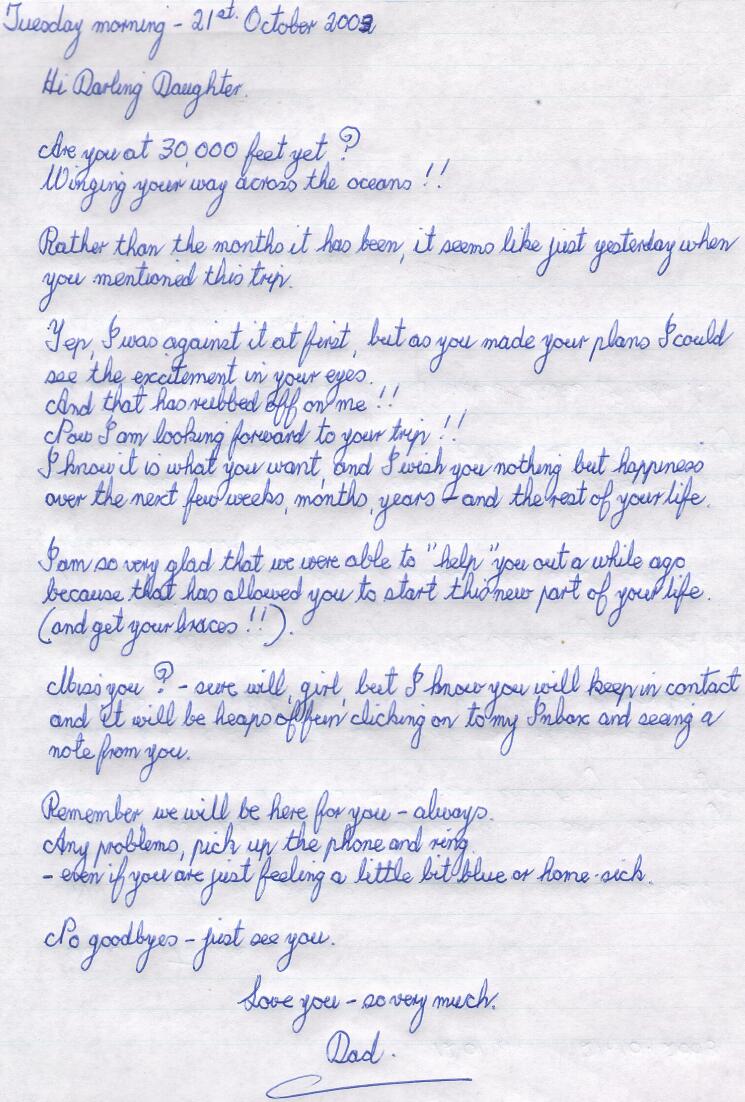 Tuesday morning - 21st. October 2003
Hi Darling Daughter.
Are you at 30,000 feet yet?
Winging your way across the oceans!!
Rather than the months it has been, it seems like just yesterday when
you mentioned this trip.
Yep, I was against it at first, but as you made your plans I could
see the excitement in your eyes.
And that has rubbed off on me!!
Now I am looking forward to your trip!!
I know it is what you want, and I wish you nothing but happiness
over the next few weeks, months, years - and the rest of your life.
I am so very glad that we were able to "help" you out a while ago,
because that has allowed you to start this new part of your life.
(and get your braces!!).
Miss you? - sure will, girl, but I know you will keep in contact
and it will be heaps of fun clicking on to my Inbox and seeing a
note from you.
Remember we will be here for you - always.
Any problems, pick up the phone and ring.
- even if you are just feeling a little bit blue or home-sick.
No goodbyes - just see you.
Love you - so very much.
Dad.